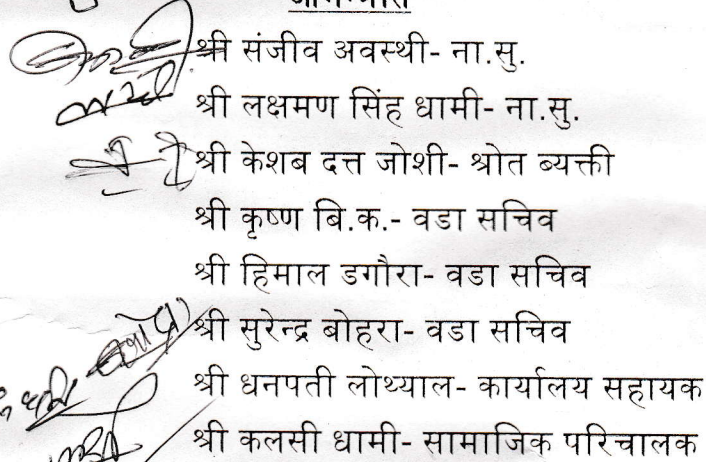 श्री संजीव अवस्थी- ना.सु.
श्री लक्षमण सिंह धामी- ना.सु.
श्री केशब दत्त जोशी- श्रोत ब्यक्ती
श्री कृष्ण बि.क.- वडा सचिव
श्री हिमाल डगौरा- वडा सचिव
श्री सुरेन्द्र बोहरा- वडा सचिव
श्री धनपती लोथ्याल- कार्यालय सहायक
श्री कलसी धामी- सामाजिक परिचालक